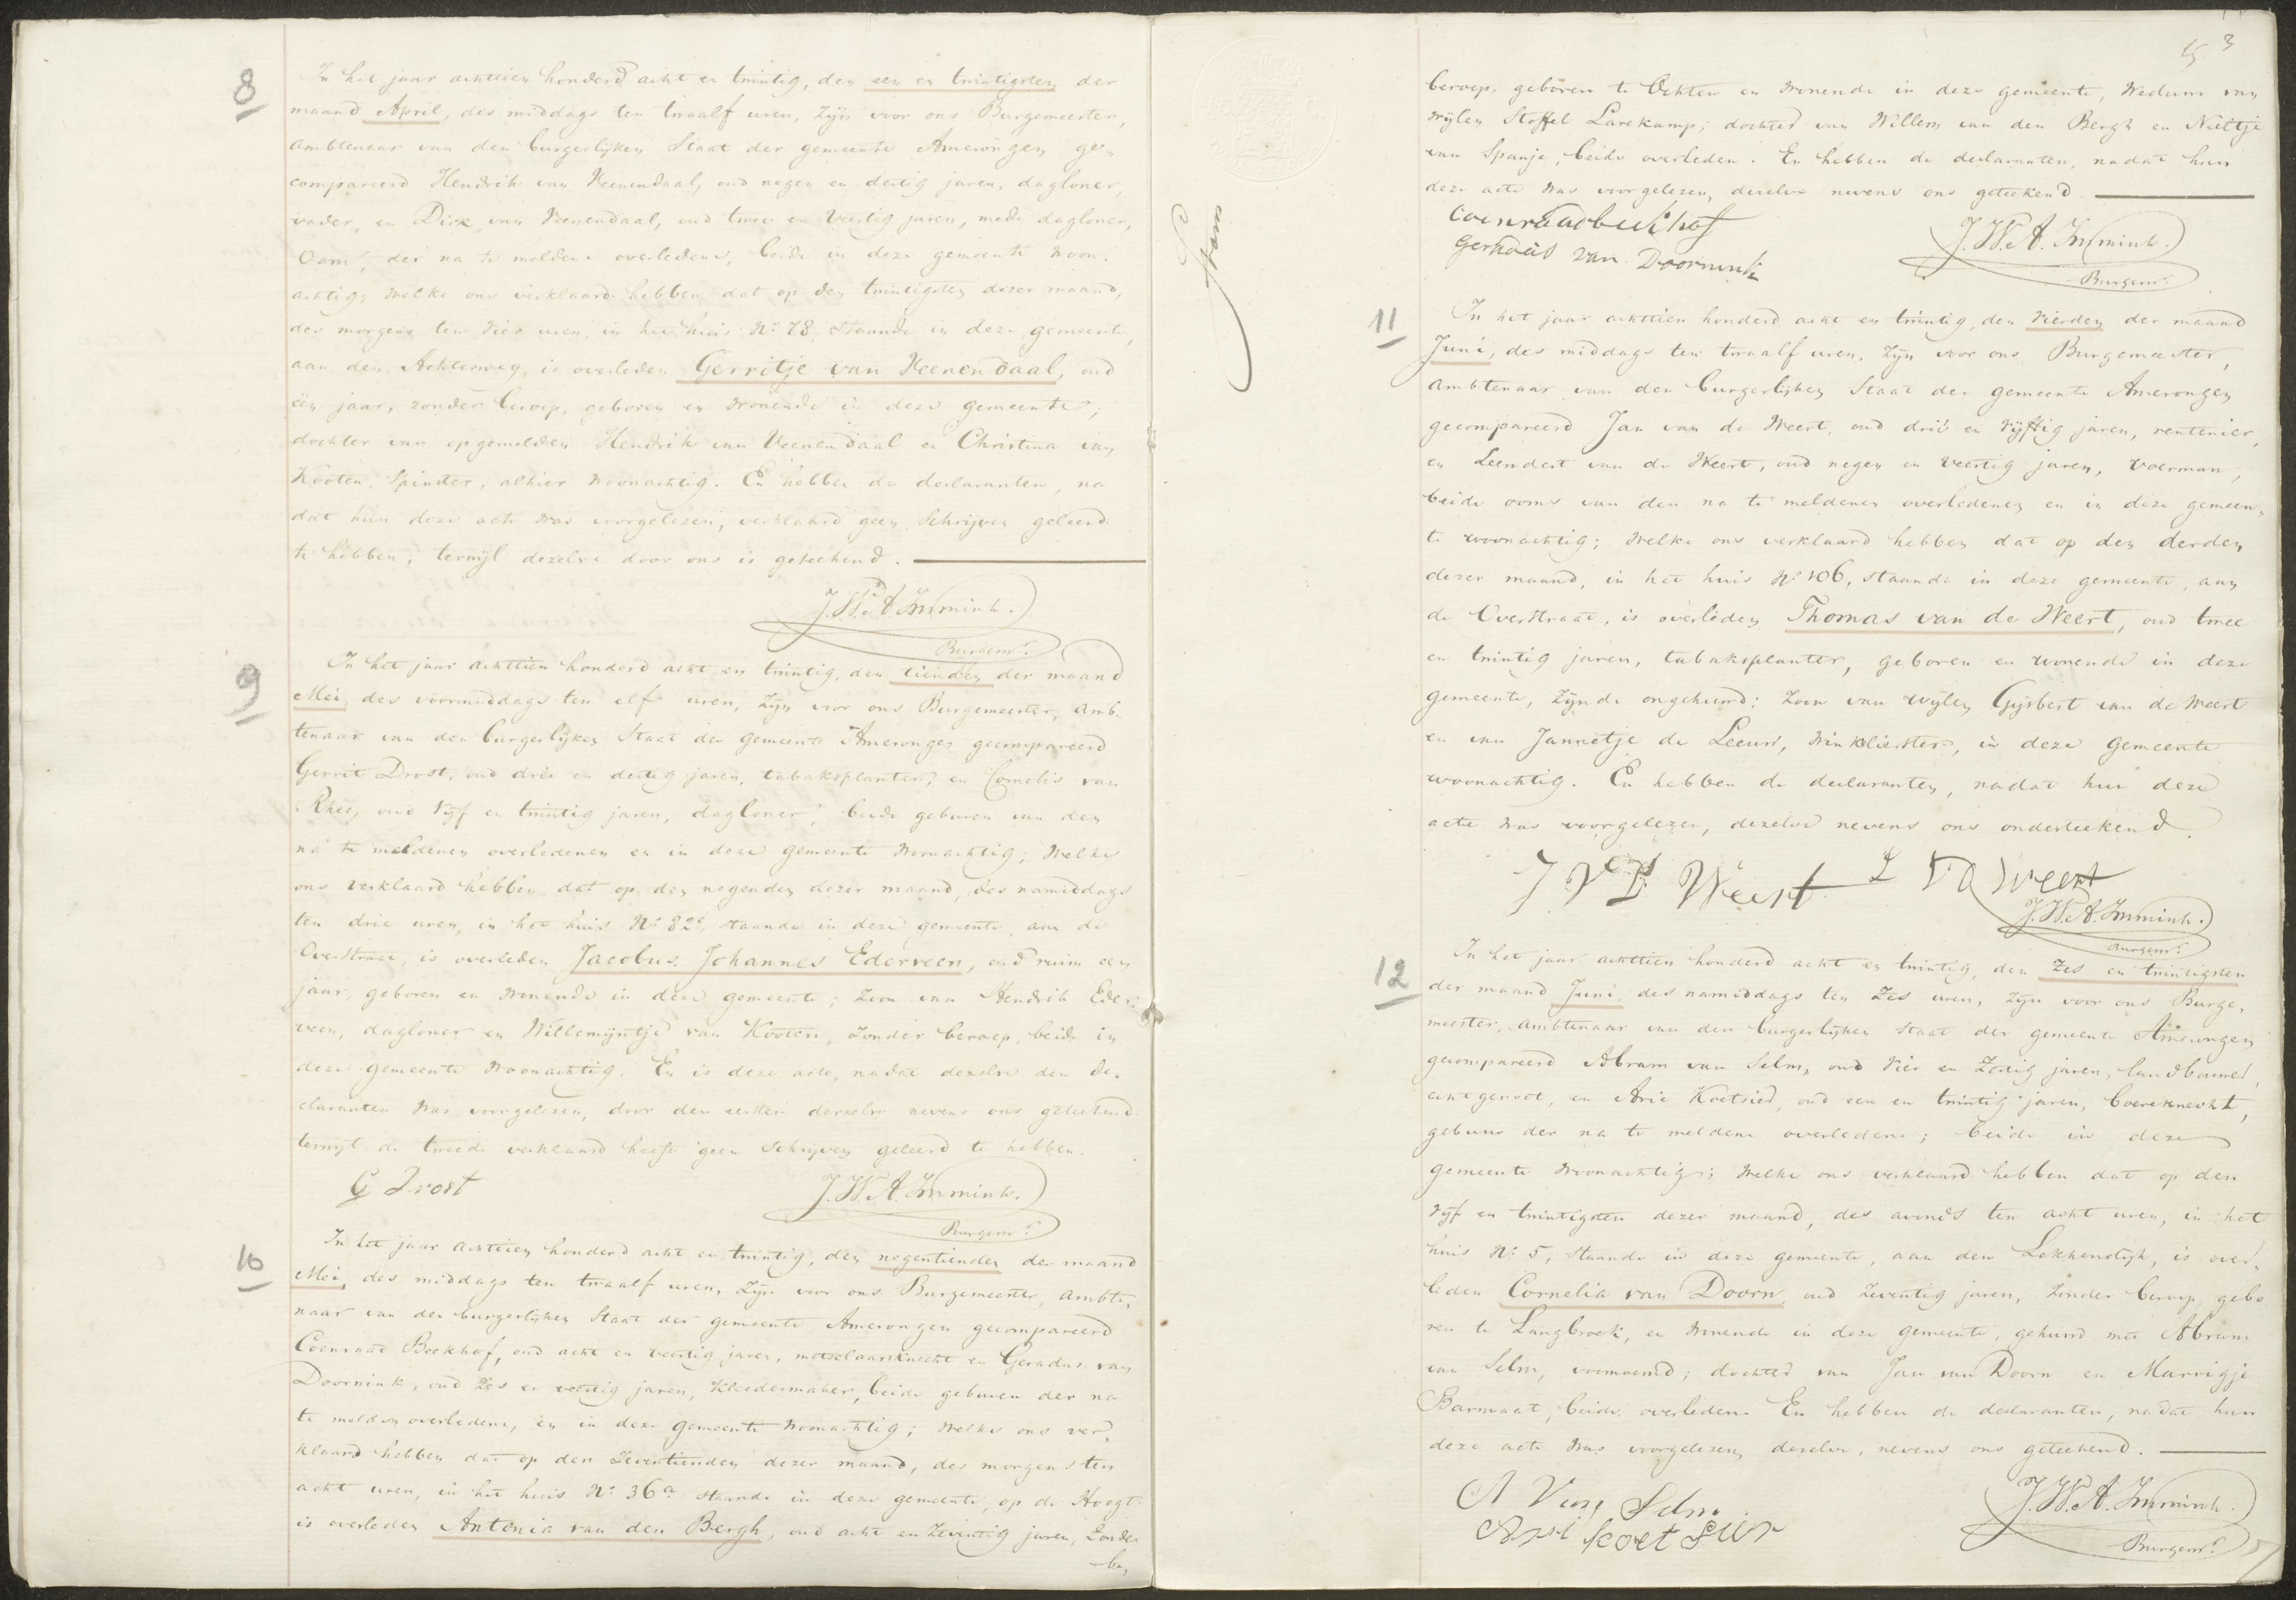 8
In het jaar achttien honderd acht en twintig, den een en twintigsten der
maand April, des middags ten twaalf uren, zijn voor ons Burgemeester,
ambtenaar van den burgerlijken Staat der gemeente Amerongen ge-
compareerd Hendrik van Veenendaal, oud negen en dertig jaren, dagloner,
vader, en Dirk van Veenendaal, oud twee en veertig jaren, mede dagloner,
Oom, der na te meldene overledene, beide in deze gemeente woon-
achtig; welke ons verklaard hebben dat op den twintigsten dezer maand,
des morgens ten vier uren, in het huis No. 78 staande in deze gemeente,
aan den Achterweg, is overleden Gerritje van Veenendaal, oud
één jaar, zonder beroep, geboren en wonende in deze gemeente;
dochter van opgemelden Hendrik van Veenendaal en Christina van
Kooten, Spinster, alhier woonachtig. En hebben de declaranten, na
dat hun deze acte was voorgelezen, verklaard geen Schrijven geleerd
te hebben; terwijl dezelve door ons is geteekend.
J. W. A. Immink.
Burgemr.
9
In het jaar achttien honderd acht en twintig, den tienden der maand
Mei, des voormiddags ten elf uren, zijn voor ons Burgemeester, amb-
tenaar van den burgerlijken Staat der gemeente Amerongen gecompareerd
Gerrit Drost, oud drie en dertig jaren, tabaksplanter, en Cornelis van
Rhee, oud vijf en twintig jaren, dagloner, beide geburen van den
na te meldenen overledenen en in deze gemeente woonachtig; welke
ons verklaard hebben dat op den negenden dezer maand, des namiddags
ten drie uren, in het huis No. 82c, staande in deze gemeente, aan de
Overstraat, is overleden Jacobus Johannes Ederveen, oud ruim een
jaar, geboren en wonende in deze gemeente; Zoon van Hendrik Eder-
veen, dagloner en Willemijntje van Kooten, zonder beroep, beide in
deze gemeente woonachtig. En is deze acte, nadat dezelve den de-
claranten was voorgelezen, door den eersten derzelve nevens ons geteekend
terwijl de tweede verklaard heeft geen Schrijven geleerd te hebben.
G Drost
J. W. A. Immink.
Burgemr.
10
In het jaar achttien honderd acht en twintig, den negentienden der maand
Mei, des middags ten twaalf uren, zijn voor ons Burgemeester, ambte-
naar van den burgerlijken Staat der gemeente Amerongen gecompareerd
Coenraad Beekhof, oud acht en veertig jaren, metselaarsknecht en Geradus van
Doornink, oud zes en veertig jaren, kleedermaker, beide geburen der na
te melden overledene, en in deze gemeente woonachtig; welke ons ver-
klaard hebben dat op den zeventienden dezer maand, des morgens ten
acht uren, in het huis No. 36a staande in deze gemeente, op de Hoogt
is overleden Antonia van den Bergh, oud acht en zeventig jaren, zonder
be-
Stam
3
beroep, geboren te Ochten en wonende in deze gemeente, Weduwe van
wijlen Stoffel Larekamp; dochter van Willem van den Bergh en Neeltje
van Spanje, beide overleden. En hebben de declaranten, nadat hun
deze acte was voorgelezen, dezelve nevens ons geteekend.
Coenraad beekhof
Gerhades van Doornink
J. W. A. Immink.
Burgemr.
11
In het jaar achttien honderd acht en twintig, den vierden der maand
Juni, des middags ten twaalf uren, zijn voor ons Burgemeester,
ambtenaar van den burgerlijken Staat der gemeente Amerongen
gecompareerd Jan van de Weert, oud drie en vijftig jaren, rentenier,
en Leendert van de Weert, oud negen en veertig jaren, voerman,
beide ooms van den na te meldenen overledenen en in deze gemeen-
te woonachtig; welke ons verklaard hebben dat op den derden
dezer maand, in het huis No. 106, staande in deze gemeente, aan
de Overstraat, is overleden Thomas van de Weert, oud twee
en twintig jaren, tabaksplanter, geboren en wonende in deze
gemeente, zijnde ongehuwd; zoon van wijlen Gijsbert van de Weert
en van Jannetje de Leeuw, winkelierster, in deze gemeente
woonachtig. En hebben de declaranten, nadat hun deze
acte was voorgelezen, dezelve nevens ons onderteekend.
J V D Weert L V D Weert
J. W. A. Immink.
Burgemr.
12
In het jaar achttien honderd acht en twintig, den zes en twintigsten
der maand Juni, des namiddags ten zes uren, zijn voor ons Burge-
meester, ambtenaar van den burgerlijken Staat der gemeente Amerongen
gecompareerd Abram van Selm, oud vier en zestig jaren, landbouwer,
echtgenoot, en Arie Koetsier, oud een en twintig jaren, boereknecht,
gebuur der na te meldene overledene; beide in deze
gemeente woonachtig; welke ons verklaard hebben dat op den
vijf en twintigsten dezer maand, des avonds ten acht uren, in het
huis No. 5, staande in deze gemeente, aan den Lekkendijk, is over-
leden Cornelia van Doorn, oud zeventig jaren, zonder beroep, gebo
ren te Langbroek, en wonende in deze gemeente, gehuwd met Abram
van Selm, voornoemd; dochter van Jan van Doorn en Marrigje
Barmaat, beide overleden. En hebben de declaranten, nadat hun
deze acte was voorgelezen, dezelve, nevens ons geteekend.
A Van Selm
Arie koetsier
J. W. A. Immink.
Burgemr.